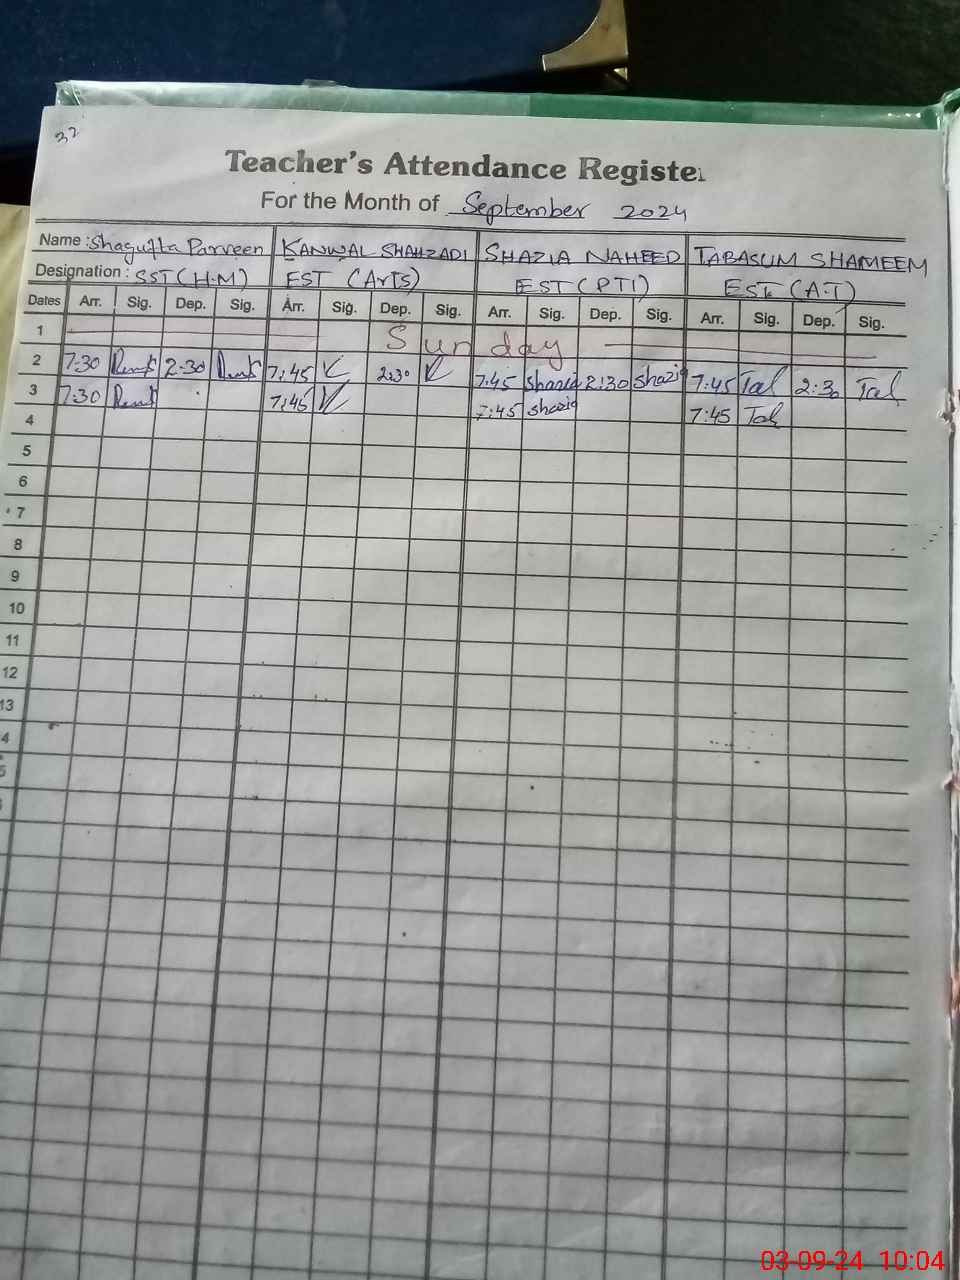 32
Teacher's Attendance Register
For the Month of September 2024
Name : Shagufta Parveen KANWAL SHAHZADI SHAZIA NAHEED TABASUM SHAMEEM
Designation : SST (H.M) EST (Arts) EST (PTI) EST (A.T)
Dates Arr. Sig. Dep. Sig. Arr. Sig. Dep. Sig. Arr. Sig. Dep. Sig. Arr. Sig. Dep. Sig.
1 Sunday
2 7:30 2:30 7:45 2:30 7:45 Shazia 2:30 Shazia 7:45 Tal 2:30 Tal
3 7:30 7:45 7:45 Shazia 7:45 Tal
4
5
6
7
8
9
10
11
12
13
4
5
03-09-24 10:04